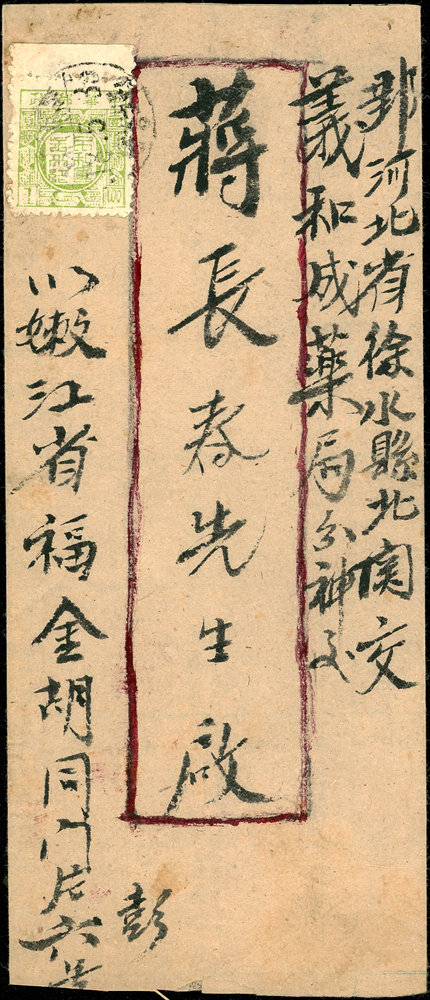 郵河北省徐水縣北関交
義和成藥局分神交
蔣長春先生啟
嫩江省福金胡同門占六号
彭